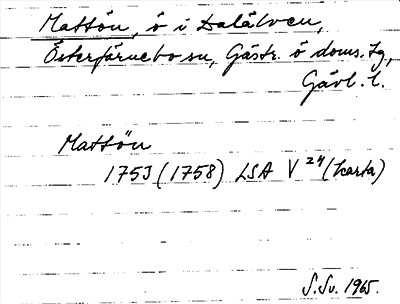 Mattön, ö i Dalälven,
Österfärnebo sn, Gästr. ö doms. tg,
Gävl. l.
Mattön
1753 (1758) LSA V 24 (karta)
S. Sv. 1965.